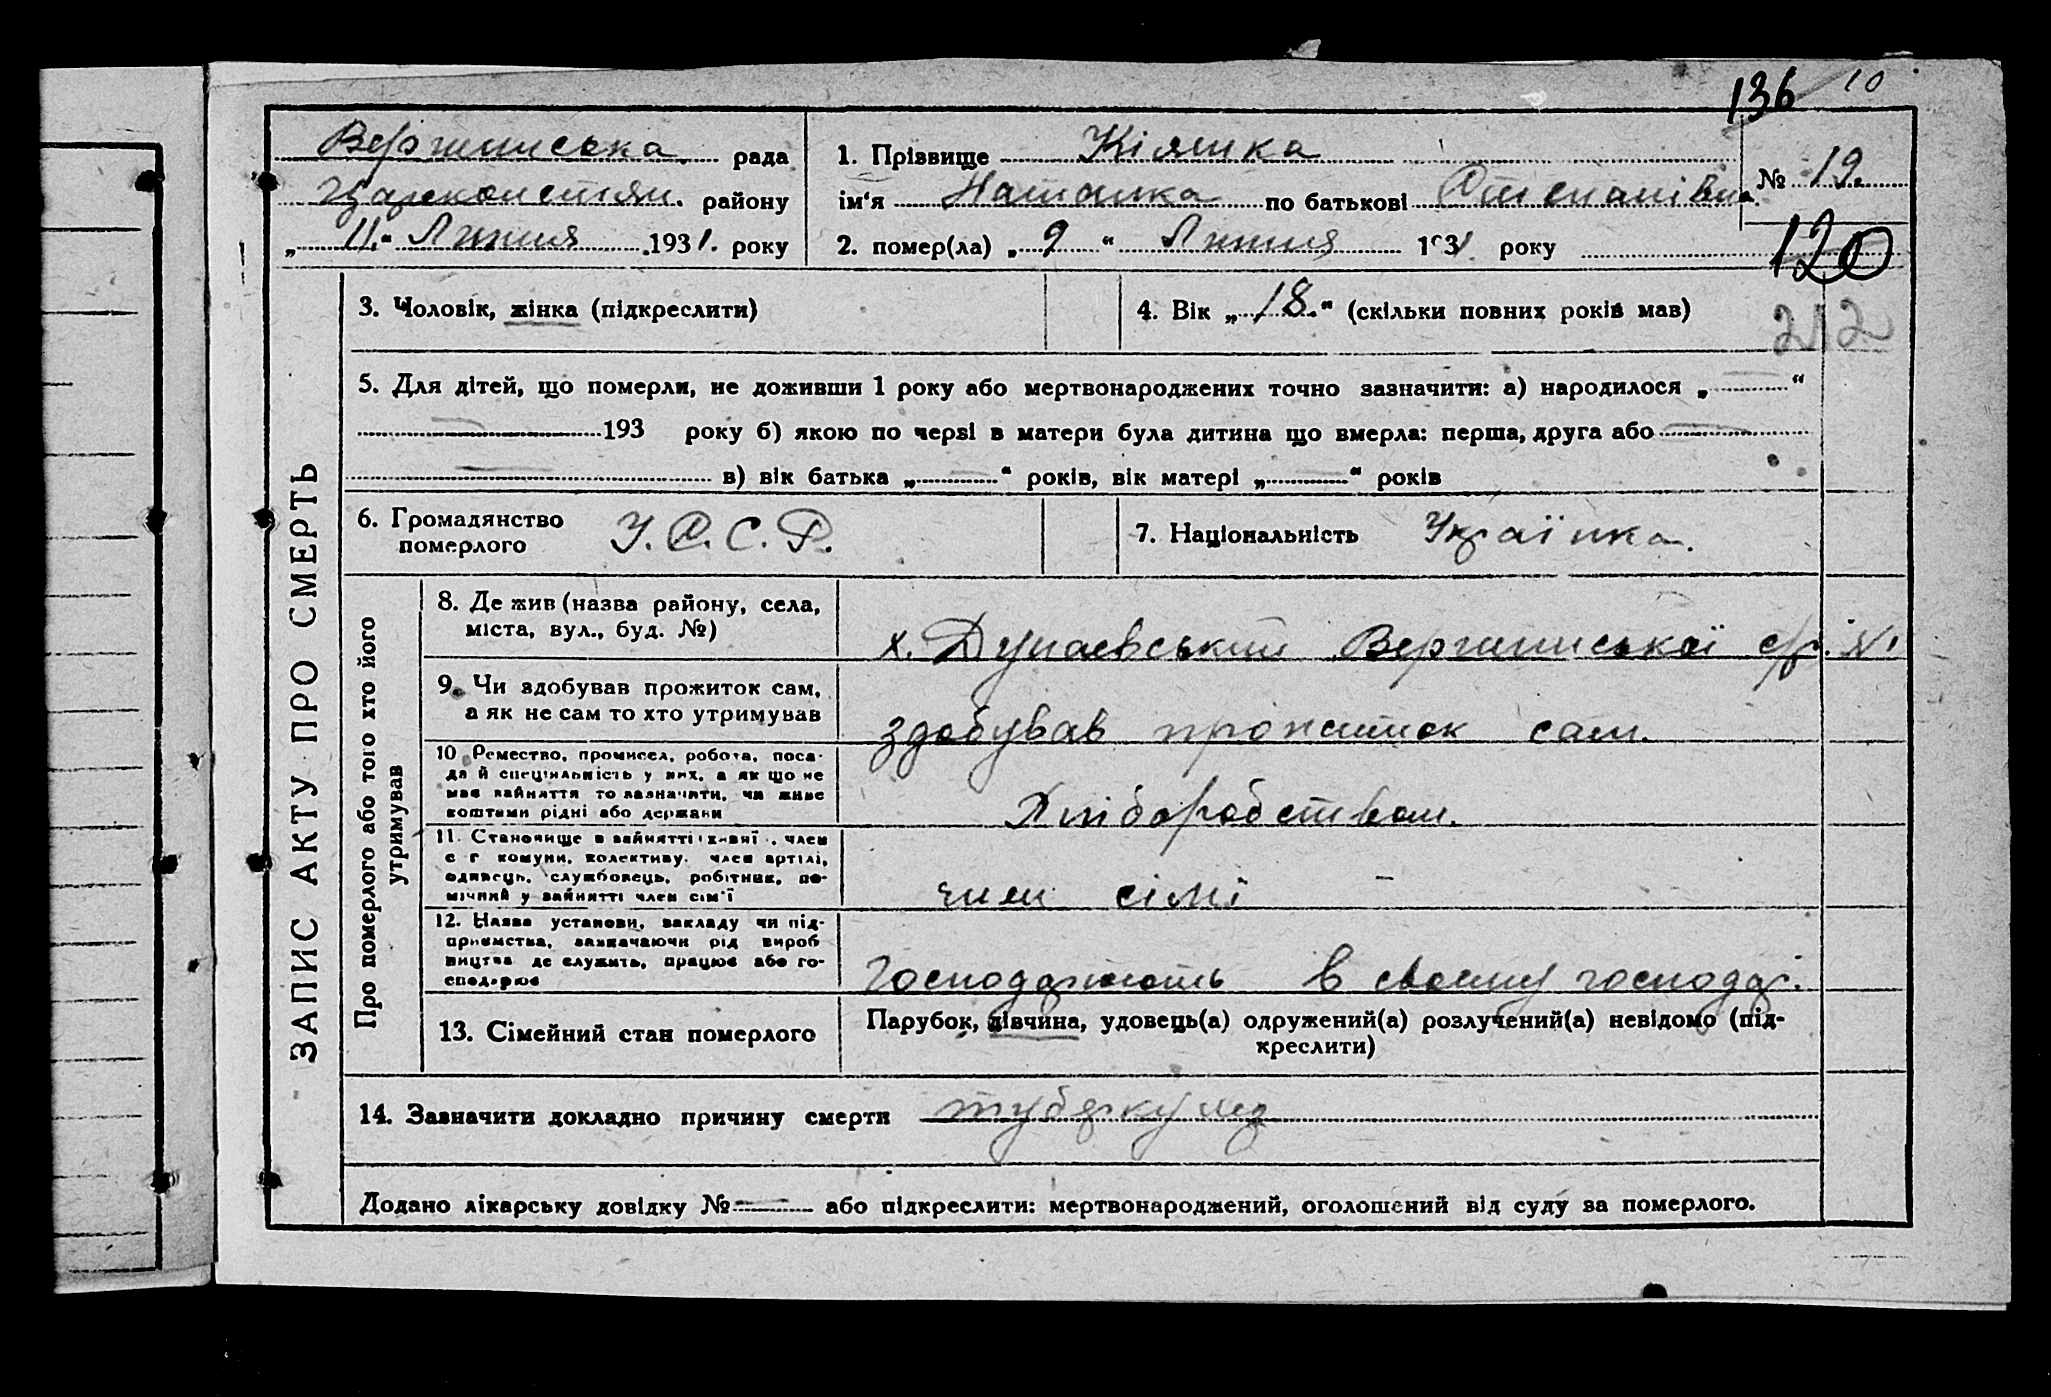 136 10
Вергишська рада
району
„ 11. “ Липня 1931. року
1. Прізвище Кіямка
ім‘я Наталка по батькові Степанівна
№ 19.
2. помер(ла) „ 9 “ Липня 1931 року
120
3. Чоловік, жінка (підкреслити)
4. Вік „ 18. “ (скільки повних років мав)
212
5. Для дітей, що померли, не доживши 1 року або мертвонароджених точно зазначити: а) народилося „ “
193 року б) якою по черзі в матери була дитина що вмерла: перша, друга або
в) вік батька „ “ років, вік матері „ “ років
6. Громадянство
померлого
У.С.С.Р.
7. Національність Українка.
ЗАПИС АКТУ ПРО СМЕРТЬ
Про померлого або того хто його
утримував
8. Де жив (назва району, села,
міста, вул., буд. №)
х. Дунаєвський с/р. №1
9. Чи здобував прожиток сам,
а як не сам то хто утримував
здобував прожиток сам.
10 Ремество, промисел, робота, поса-
да й спеціяльність у них, а як що не
має зайняття то зазначити, чи живе
коштами рідні або держави
Хліборобством.
11. Становище в зайнятті: хазяї . член
с г комуни, колективу. член артілі,
одинець, службовець, робітник, по-
мічний у зайнятті член сім‘ї
член сімі
12. Назва установи, закладу чи під-
приємства, зазначаючи рід вироб
ництва де служить, працює або го-
сподарює
Господарюють в своєму господар.
13. Сімейний стан померлого
Парубок, дівчина, удовець(а) одружений(а) розлучений(а) невідомо (під-
креслити)
14. Зазначити докладно причину смерти туберкулез
Додано лікарську довідку № або підкреслити: мертвонароджений, оголошений від суду за померлого.